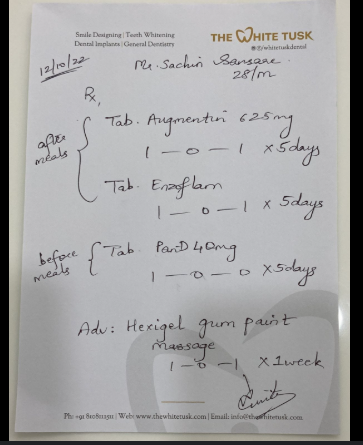 Smile Designing | Teeth Whitening
Dental implants | General Dentistry
THE WHITE TUSK
@/whitetuskdental
12/10/22
Mr. Sachin Sansare
28/M
Rx,
after meals
Tab. Augmentin 625mg
1 — 0 — 1 x 5days
Tab. Enzoflam
1 — 0 — 1 x 5days
before meals
Tab. PanD 40mg
1 — 0 — 0 x 5days
Adv: Hexigel gum paint
massage
1 — 0 — 1 x 1week
Web: www.thewhitetusk.com | Email: info@thewhitetusk.com